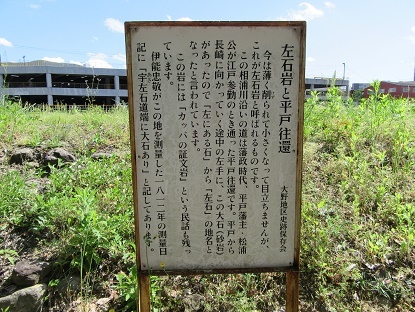 左石岩と平戸往還
大野地区史跡保存会
今は薄く削られて小さくなって目立ちませんが、
これが左石岩と呼ばれるものです。
この相浦川沿いの道は藩政時代、平戸藩主・松浦
公が江戸参勤のとき通った平戸往還です。平戸から
長崎に向かっていく途中の左手に、この大石(砂岩)
があったので「左にある石」から「左石」の地名と
なったと言われています。
この岩には「カッパの証文岩」という民話も残っ
ています。
伊能忠敬がこの地を測量した一八一二年の測量日
記に「字左石道端に大石あり」と記してあります。